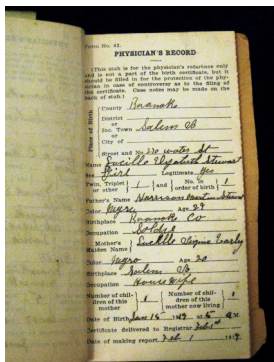 Form No. 42.
PHYSICIAN'S RECORD
(This stub is for the physician's reference only
and is not a part of the birth certificate, but it
should be filled in for the protection of the phy-
sician in case of controversy as to the filing of
the certificate. Case notes may be made on the
back of stub.)
Place of Birth
County Roanoke
District
or
Inc. Town Salem Va
or
City of
Street and No. 230 water St
Name Lucille Elizabeth Stewart
Sex Girl Legitimate Yes
Twin, Triplet or other 1 and No. in order of birth 1
Father's Name Harrison Stewart
Color Negro Age 29
Birthplace Roanoke Co
Occupation Soldier
Mother's Maiden Name Lucille Early
Color Negro Age 20
Birthplace Salem Va
Occupation House Wife
Number of chil-dren of this mother 1 Number of chil-dren of this mother now living 1
Date of Birth Jan 15 M.
Certificate delivered to Registrar Feb 1st
Date of making report Feb 1 191